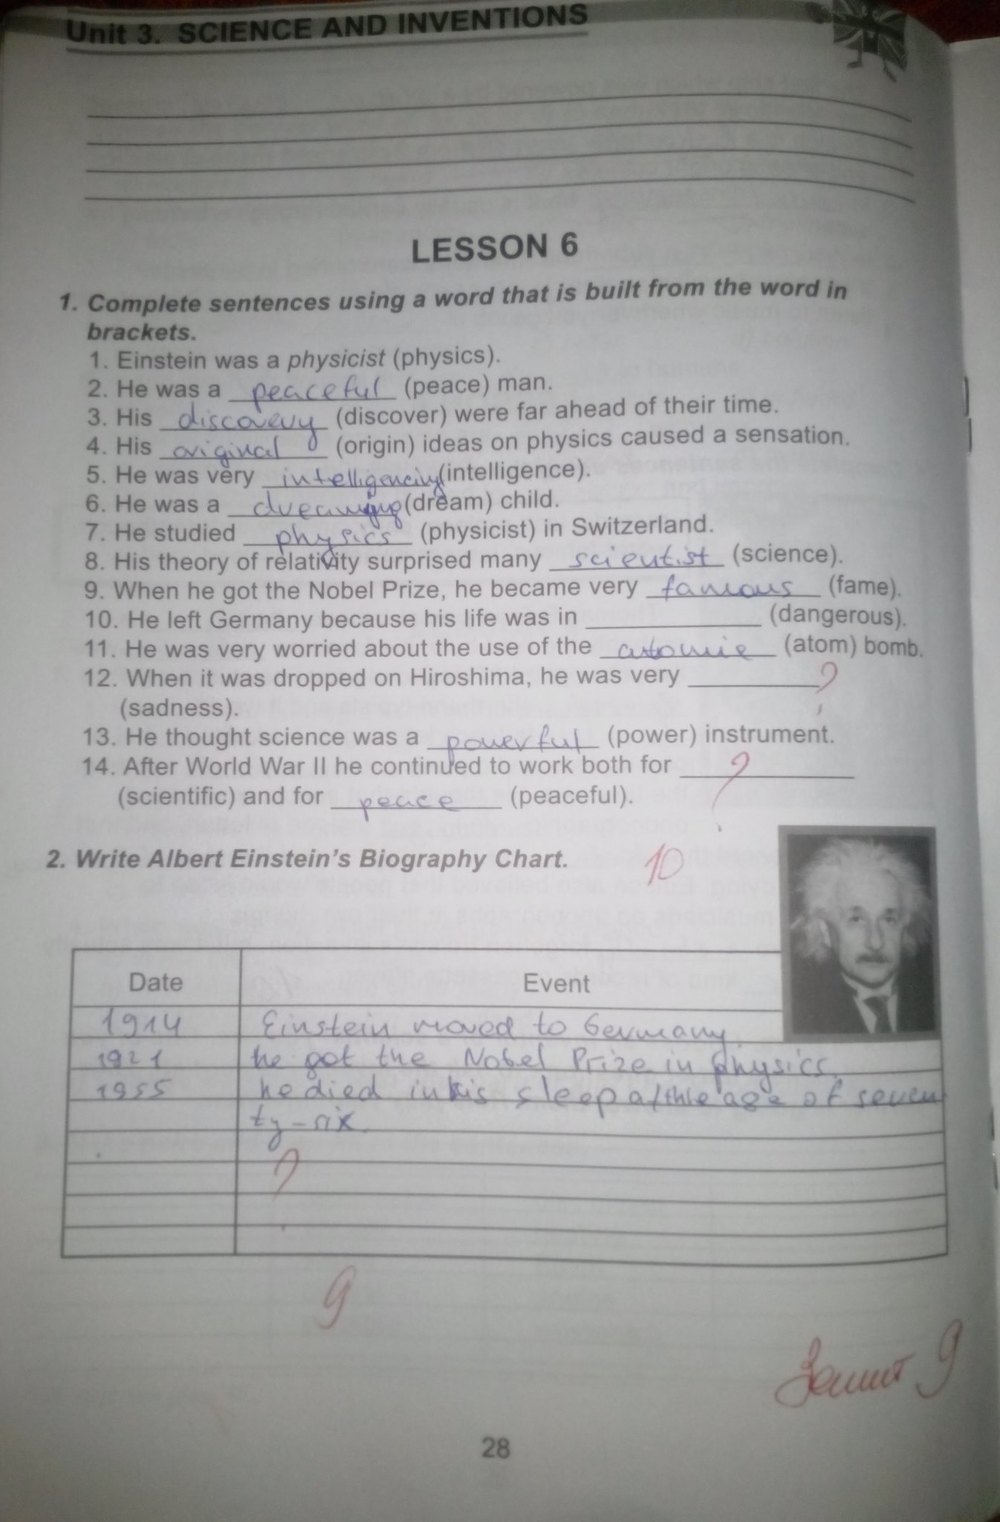 Unit 3. SCIENCE AND INVENTIONS
LESSON 6
1. Complete sentences using a word that is built from the word in
brackets.
1. Einstein was a physicist (physics).
2. He was a peaceful (peace) man.
3. His discovery (discover) were far ahead of their time.
4. His original (origin) ideas on physics caused a sensation.
5. He was very intelligenciy (intelligence).
6. He was a dreaming (dream) child.
7. He studied physics (physicist) in Switzerland.
8. His theory of relativity surprised many scientist (science).
9. When he got the Nobel Prize, he became very famous (fame).
10. He left Germany because his life was in ____________ (dangerous).
11. He was very worried about the use of the atomie (atom) bomb.
12. When it was dropped on Hiroshima, he was very _________?
(sadness).
13. He thought science was a powerful (power) instrument.
14. After World War II he continued to work both for ____?________
(scientific) and for peace (peaceful).
2. Write Albert Einstein's Biography Chart. 10
Date Event
1914 Einstein moved to Germany
1921 he got the Nobel Prize in physics.
1955 he died in his sleep at the age of seven
ty-six.
?
9
Зошит 9
28